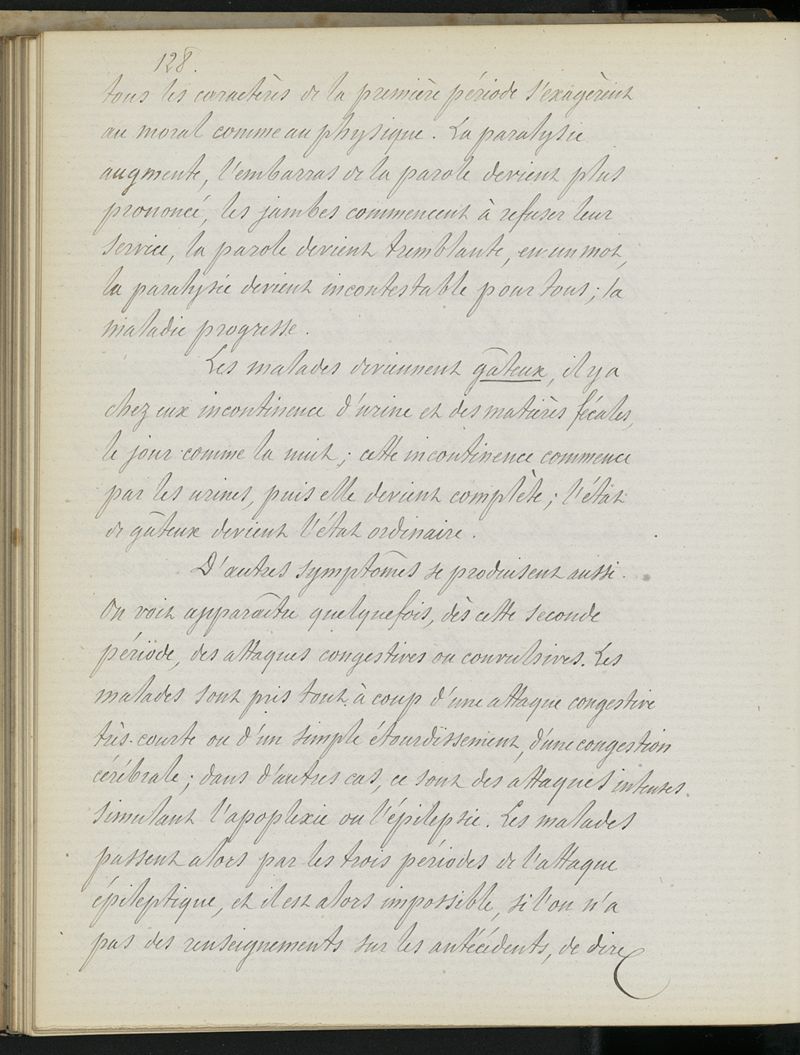 128.
tous les caractères de la première période s'exagèrent
au moral comme au physique. La paralysie
augmente, l'embarras de la parole devient plus
prononcé, les jambes commencent à refuser leur
service, la parole devient tremblante, en un mot,
la paralysie devient incontestable pour tous ; la
maladie progresse.
Les malades deviennent gâteux, il y a
chez eux incontinence d'urine et des matières fécales,
le jour comme la nuit ; cette incontinence commence
par les urines, puis elle devient complète ; l'état
de gâteux devient l'état ordinaire.
D'autres symptômes se produisent aussi.
On voit apparaître quelquefois, dès cette seconde
période, des attaques congestives ou convulsives. Les
malades sont pris tout à coup d'une attaque congestive
très-courte ou d'un simple étourdissement, d'une congestion
cérébrale ; dans d'autres cas, ce sont des attaques intenses
simulant l'apoplexie ou l'épilepsie. Les malades
passent alors par les trois périodes de l'attaque
épileptique, et il est alors impossible, si l'on n'a
pas des renseignements sur les antécédents, de dire